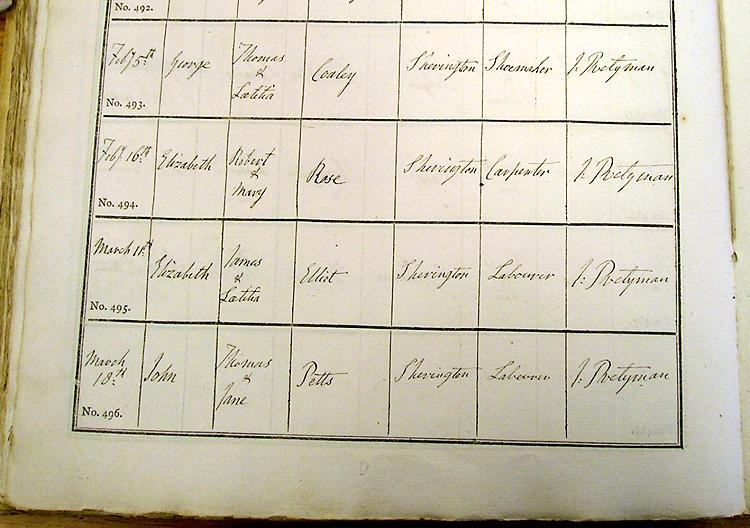 No. 492.
Feby 5th George Thomas & Lætitia Coaley Sherington Shoemaker J: Pretyman
No. 493.
Feby 16th Elizabeth Robert & Mary Rose Sherington Carpenter J: Pretyman
No. 494.
March 11th Elizabeth James & Lætitia Elliot Sherington Labourer J: Pretyman
No. 495.
March 18th John Thomas & Jane Petts Sherington Labourer J: Pretyman
No. 496.